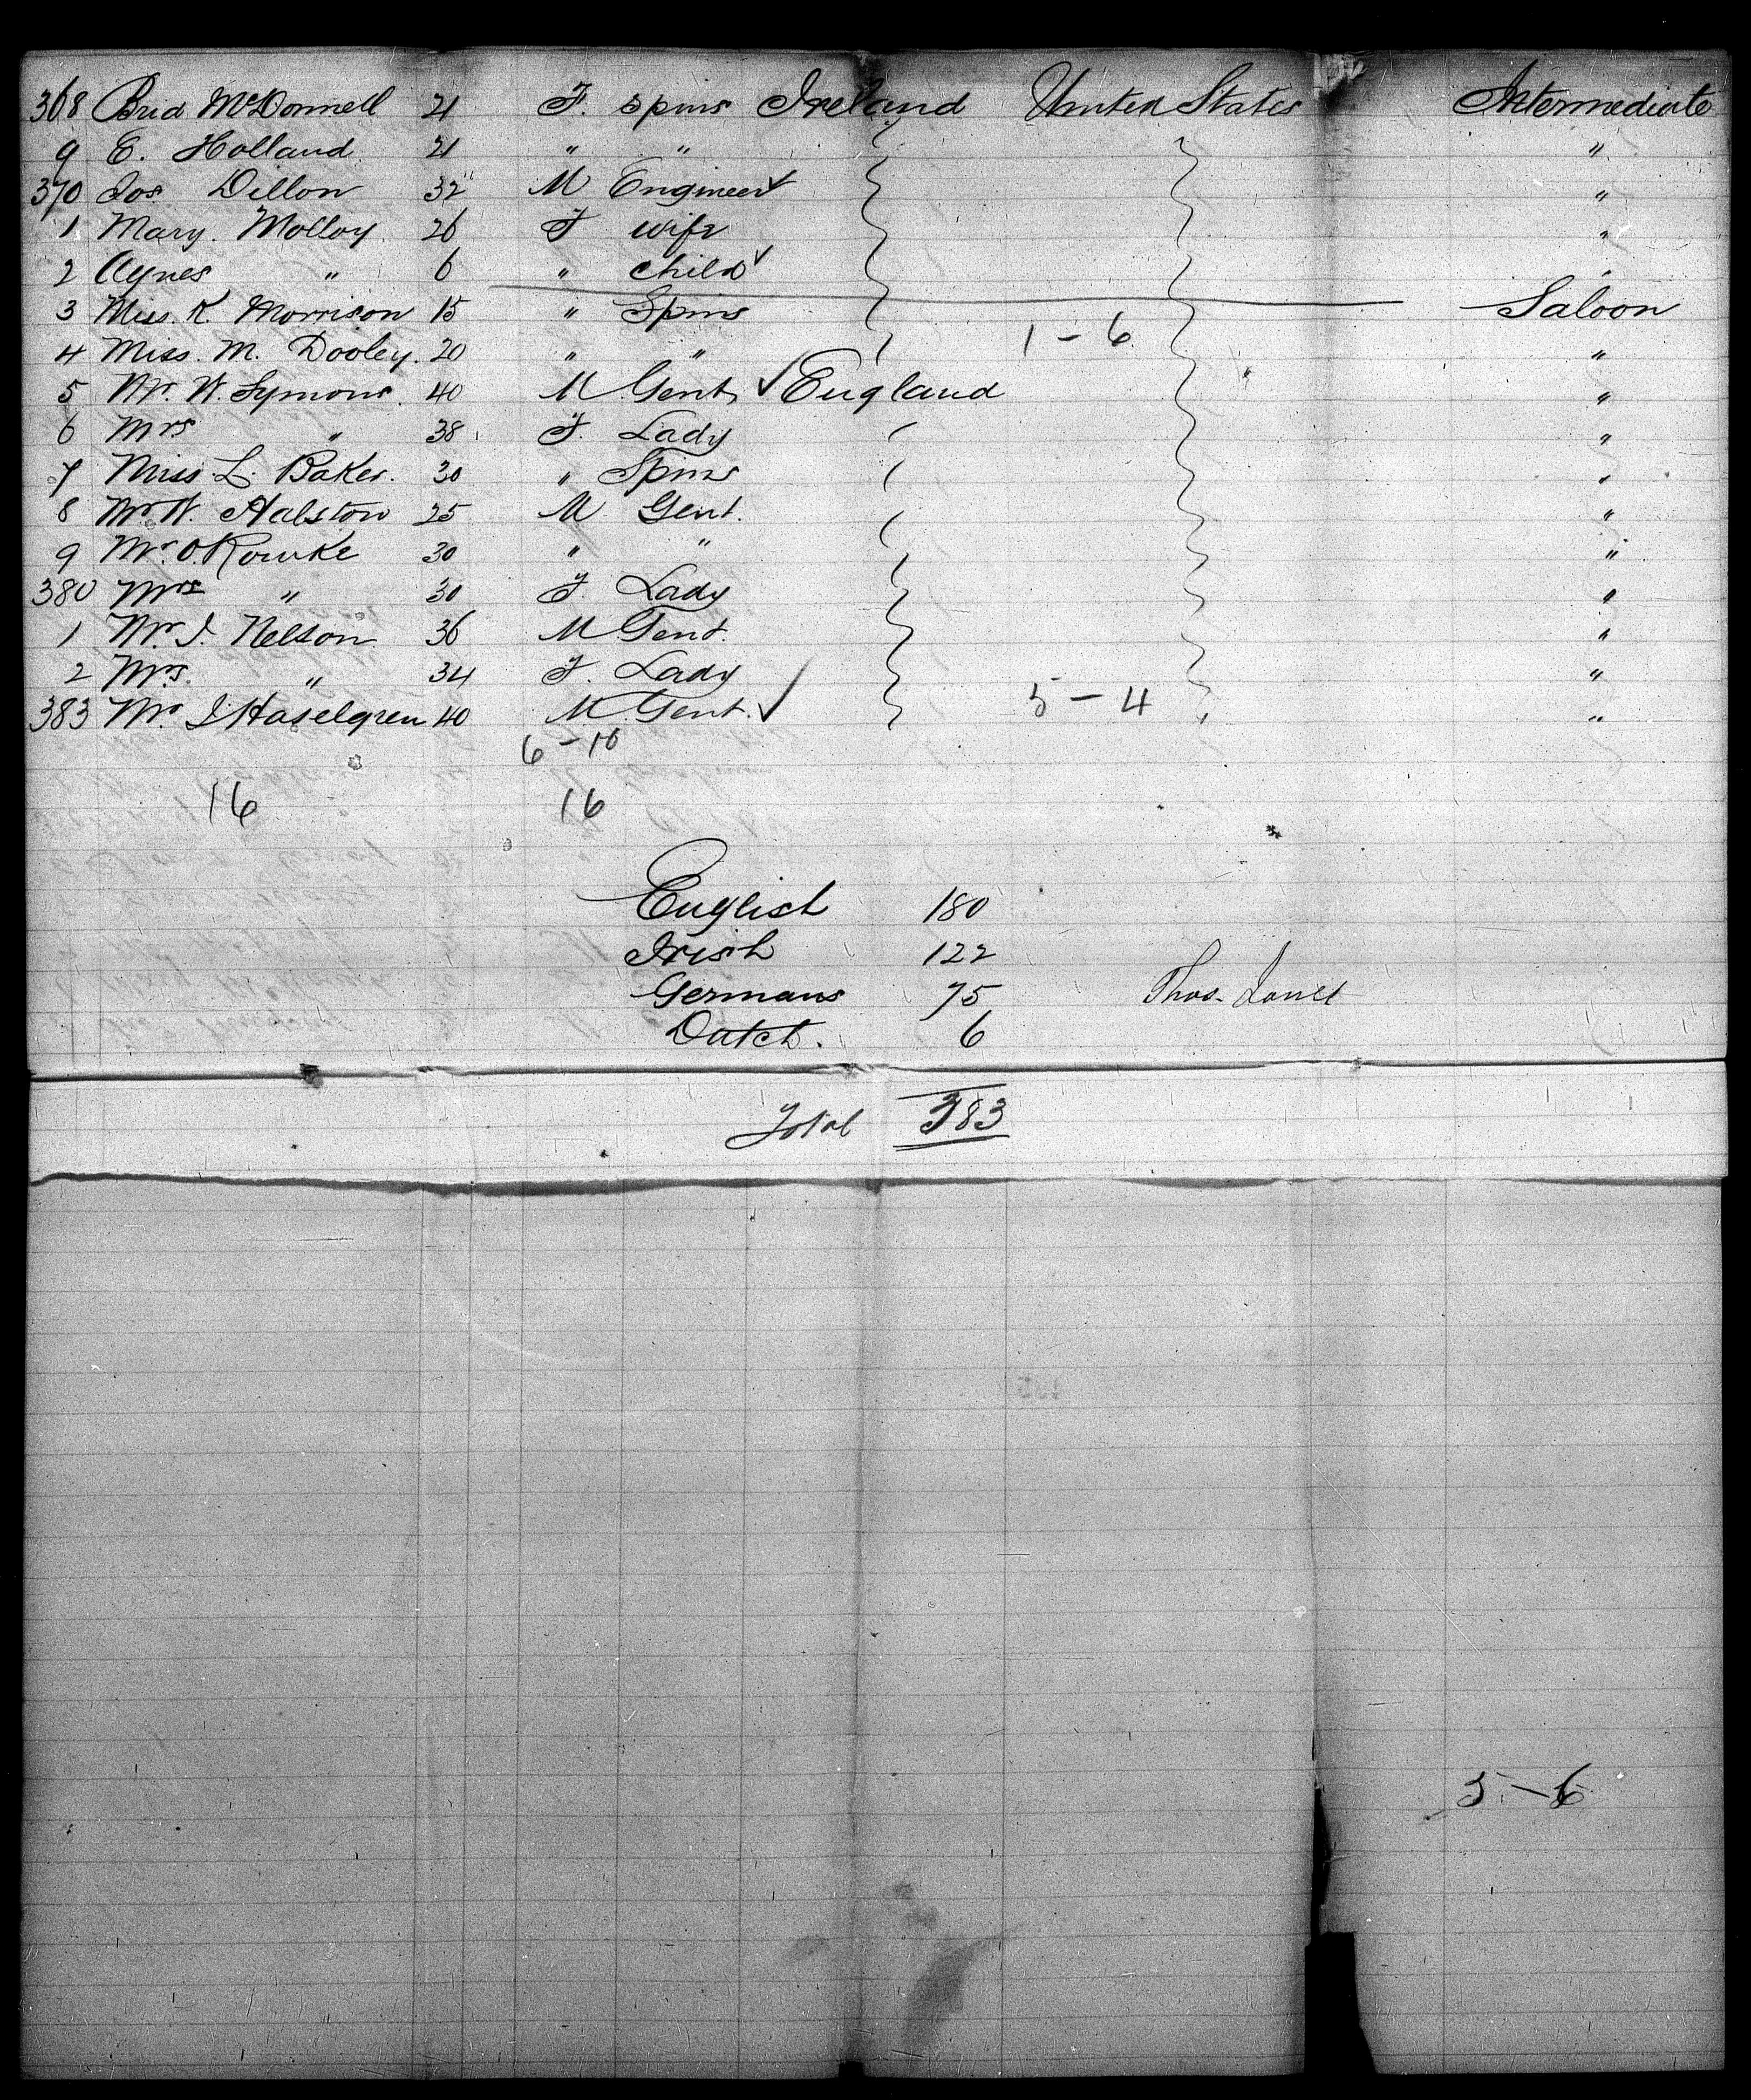 368 Brid McDonnell 21 F. Spins Ireland United States Intermediate
9 E. Holland 21 " " "
370 Jos Dillon 32 M Engineer "
1 Mary Molloy 26 F wife "
2 Agnes " 6 " child "
3 Miss. K. Morrison 15 " Spins Saloon
4 Miss. M. Dooley. 20 " " 1 - 6 "
5 Mr. W. Symons. 40 M Gent. England " "
6 Mrs " 38 F. Lady "
7 Miss L. Baker. 30 " Spins "
8 Mr W. Halston 25 M Gent. "
9 Mr. O'Rourke 30 " " "
380 Mrs " 30 F. Lady "
1 Mr. J. Nelson 36 M Gent. "
2 Mrs. " 34 F. Lady "
383 Mr J Haselgren 40 M. Gent. 5 - 4 "
6 - 10
16 16
English 180
Irish 122
Germans 75 Thos. Jones
Dutch. 6
Total 383
5 - 6